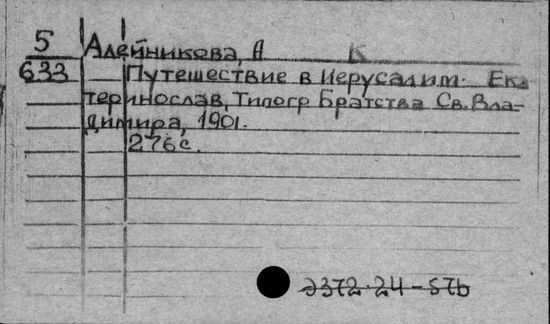 5 Алейникова, А К
633 Путешествие в Иерусалим. Ека
теринослав, Типогр Братства Св. Вла-
димира, 1901.
276 с.
Э372·24-57б